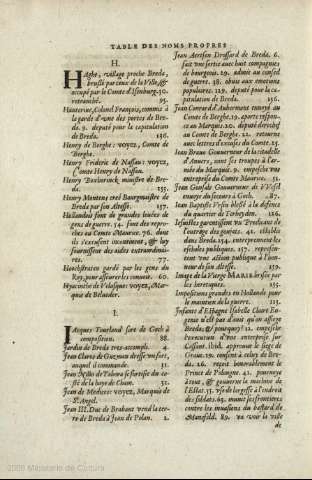 TABLE DES NOMS PROPRES
H.
Haghe, village proche Breda,
bruslé par ceux de la Ville, &
occupé par le Comte d'Isemburg. 50.
retranché. 95.
Hauterive, Colonel François, commis à
la garde d'une des portes de Bre-
da. 9. deputé pour la capitulation
de Breda. 136.
Henry de Berghe: voyez, Comte de
Berghe.
Henry Frideric de Nassau: voyez,
Comte Henry de Nassau.
Henry ministre de Bre-
da. 155.
Henry Montens creé Bourgmaistre de
Breda par son Altesse. 157.
Hollandois font de grandes levées de
gens de guerre. 54. font des repro-
ches au Comte Maurice. 76. dont
ils s'excusent & luy
fournissent des aides extraordinai-
res. 77.
Honchstraten gardé par les gens du
Roy, pour asseurer les convois. 60.
Hyacinthe de Velasque: voyez, Mar-
quis de Belueder.
I.
Iacques Tourlond sort de Goch à
composition. 88.
Jardin de Breda tres-accomply. 4.
Jean Claros de Guzman dresse un fort,
auquel il commande. 51.
Jean Niño de Tabora se saisist du co-
sté de la haye de Cham. 51.
Jean de Medices: voyez, Marquis de
S. Angel.
Jean III. Duc de Brabant vend la ter-
re de Breda à Jean de Polan. 2.
Jean Aertsen Drossard de Breda. 6.
fait une sortie avec huit compagnies
de bourgeois. 19. admis au conseil
de guerre. 38. obvie aux emotions
populaires. 119. deputé pour la ca-
pitulation de Breda. 136.
Jean Conrard d'Aubermont envoyé au
Comte de Berghe. 19. apporte respon-
ce au Marquis. 20. deputé derechef
au Comte de Berghe. 22. retourne
avec lettres d'excuses du Comte. 23.
Jean Bravo Gouverneur de la citadelle
d'Anvers, unit ses troupes à l'ar-
mée du Marquis. 9. empesche une
entreprise du Comte Maurice. 51
Jean Gonsale Gouverneur de VVesel
envoye du secours à Goch. 87.
Jean Baptiste Ursin blessé à la defence
du quartier de Terheyden. 126.
Jesuistes garantissent un Predicant de
l'outrage des goujats. 41. establis
dans Breda. 154. entreprennent les
escholes publiques. 157. represen-
tent une action publique à l'hon-
neur de son Altesse. 159.
Image de la Vierge MARIE brisée par
les heretiques. 155.
Impositions grandes en Hollande pour
le maintien de la guerre. 113.
Infante d'Espagne Isabelle Claire Eu-
genie n'est pas d'avis qu'on assiege
Breda; & pourquoy? 12. empesche
execution d'une entreprise sur
Cassant. ibid. approuve le siege de
Grave. 19. consent à celuy de Bre-
da. 26. reçoit honorablement le
Prince de Pologne. 42. pourvoye
à tout, & gouverne le maniment de
l'Estat. 51. use de largesse à l'endroit
des soldats. 63. munit ses frontieres
contre les invasions du bastard de
Mansfeld. 89. va voir la ville
de
2008 Ministerio de Cultura